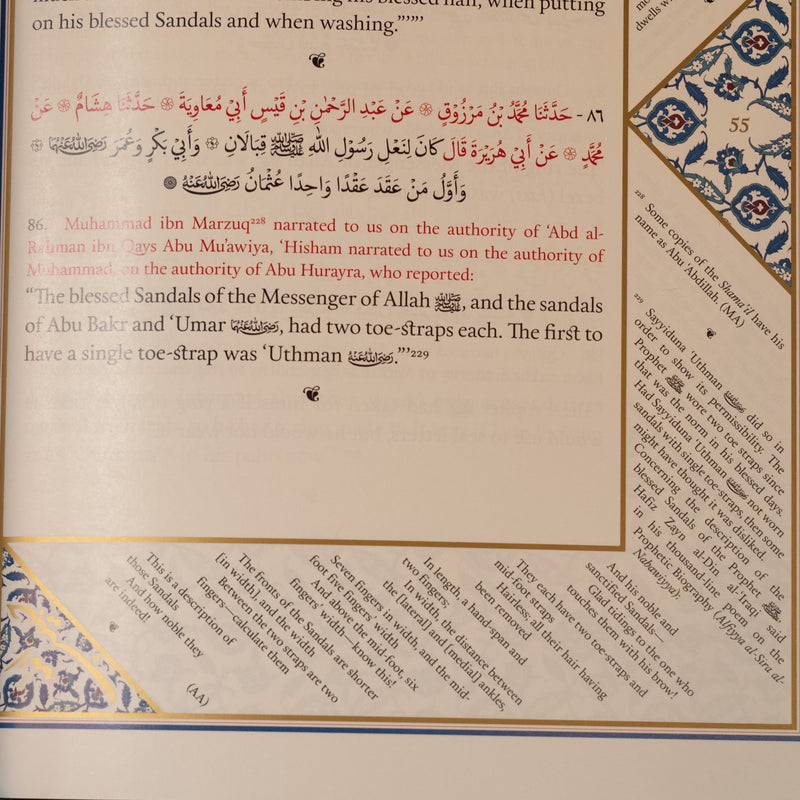 his blessed hair, when putting
on his blessed Sandals and when washing.”’”’
٨٦ - حَدَّثَنَا مُحَمَّدُ بْنُ مَرْزُوْقٍ ۞ عَنْ عَبْدِ الرَّحْمٰنِ بْنِ قَيْسٍ أَبِيْ مُعَاوِيَةَ ۞ حَدَّثَنَا هِشَامٌ ۞ عَنْ
مُحَمَّدٍ ۞ عَنْ أَبِيْ هُرَيْرَةَ قَالَ كَانَ لِنَعْلِ رَسُوْلِ اللّٰهِ ﷺ قِبَالَانِ ۞ وَأَبِيْ بَكْرٍ وَعُمَرَ رَضِيَ اللّٰهُ عَنْهُمَا ۞
وَأَوَّلُ مَنْ عَقَدَ عَقْدًا وَاحِدًا عُثْمَانُ رَضِيَ اللّٰهُ عَنْهُ
86. Muhammad ibn Marzuq²²⁸ narrated to us on the authority of ‘Abd al-
Rahman ibn Qays Abu Mu‘awiya, ‘Hisham narrated to us on the authority of
Muhammad, on the authority of Abu Hurayra, who reported:
“The blessed Sandals of the Messenger of Allah ﷺ, and the sandals
of Abu Bakr and ‘Umar رَضِيَ اللّٰهُ عَنْهُمَا, had two toe-straps each. The first to
have a single toe-strap was ‘Uthman رَضِيَ اللّٰهُ عَنْهُ.”’²²⁹
dwells
55
²²⁸ Some copies of the Shama’il have his
name as Abu ‘Abdillah. (MA)
²²⁹ Sayyiduna ‘Uthman رَضِيَ اللّٰهُ عَنْهُ did so in
order to show its permissibility. The
Prophet ﷺ wore two toe straps since
that was the norm in his blessed days.
Had Sayyiduna ‘Uthman رَضِيَ اللّٰهُ عَنْهُ not worn
sandals with single toe-straps, then some
might have thought it was disliked.
Concerning the description of the
blessed Sandals of the Prophet ﷺ,
Hafiz Zayn al-Din al-‘Iraqi said
in his thousand-line poem on the
Prophetic Biography (Alfiyya al-Sira al-
Nabawiyya):
And his noble and
sanctified Sandals—
Glad tidings to the one who
touches them with his brow!
They each have two toe-straps and
mid-foot straps
Hairless; all their hair having
been removed
In length, a hand span and
two fingers,
In width, the distance between
the [lateral] and [medial] ankles,
Seven fingers in width, and the mid-
foot five fingers’ width
And above the mid-foot, six
fingers’ width—know this!
The fronts of the Sandals are shorter
[in width], and the width
Between the two straps are two
fingers—calculate them
This is a description of
those Sandals
And how noble they
are indeed!
(AA)